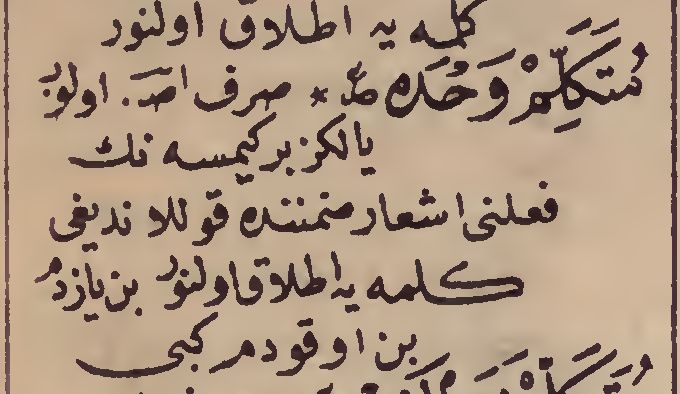 كلمه يه اطلاق اولنور
مُتَكَلِّمْ وَحْدَه * صرف اولور
يالكز بر كيمسه نك
فعلنى اشعار ضمننده قوللانديغى
كلمه يه اطلاق اولنور بن يازدم
بن اوقودم كبى